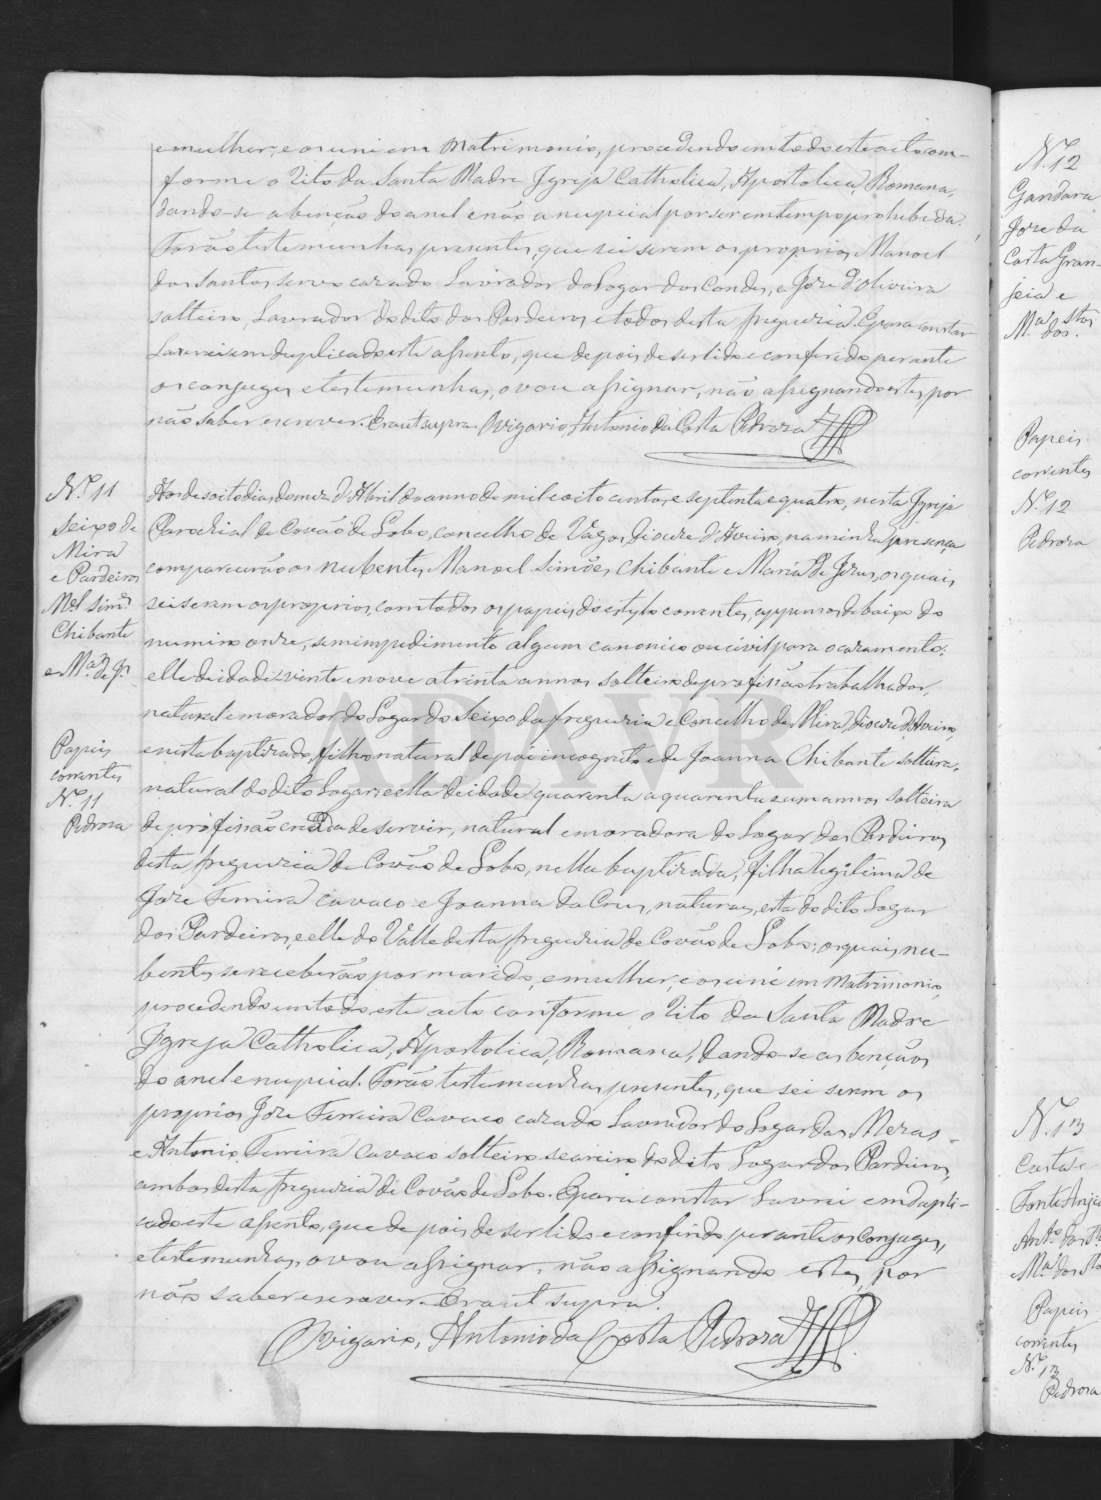 e mulher, e os uni em Matrimonio, procedendo em todo este acto com-
forme o Rito da Santa Madre Igreja Catholica, Apostolica, Romana,
dando-se a benção do anel e não a nupcial por ser em tempo prohibido.
Forão testemunhas presentes, que sei serem os proprios, Manoel
dos Santos Servo cazado Lavrador do Logar dos Condes, e Joze d'Oliveira
solteiro, Lavrador do dito dos Pardeiros e todos desta freguezia. E para constar
Lavrei em duplicado este assento, que depois de ser lido e conferido perante
os conjuges e testemunhas, o vou assignar, não assignando estes por
não saber escrever. Era ut supra. O Vigario Antonio da Costa Pedroza
N.º 11
Seixo de
Mira
e Pardeiros
Mel Simes
Chibante
e Ma. de Js.
Papeis
correntes
N.º 11
Pedroza
Aos desoito dias do mez d'Abril do anno de mil e oito centos, e septenta e quatro, nesta Igreja
Parochial de Covão de Lobo, concelho de Vagos, Dioceze d'Aveiro, na minha presença
comparecerão os nubentes, Manoel Simões Chibante e Maria De Jezus, os quais
sei serem os proprios, com todos os papeis do estylo correntes, appensos debaixo do
numero onze, sem impedimento algum canonico ou civil para o cazamento:
elle de idade vinte e nove a trinta annos solteiro de profissão trabalhador,
natural e morador do Logar do Seixo da freguezia e Concelho de Mira, Dioceze d'Aveiro
e nesta baptizado, filho natural de pai incognito e de Joanna Chibante solteira,
natural do dito Logar: e ella de idade quarenta a quarenta e um annos solteira
de profissão creada de servir, natural e moradora do Logar dos Pardeiros
desta freguezia de Covão de Lobo, nella baptizada, filha legitima de
Joze Ferreira Cavaco e Joanna da Cruz, naturaes, esta do dito Logar
dos Pardeiros, e elle do Valle desta freguezia de Covão de Lobo; os quais nu-
bentes se receberão por marido, e mulher, e os uni em Matrimonio,
procedendo em todo este acto conforme o Rito da Santa Madre
Igreja Catholica, Apostolica, Romana, dando-se as bençãos
do anel e nupcial. Forão testemunhas presentes, que sei serem os
proprios Joze Ferreira Cavaco cazado Lavrador do Logar das Mezas
e Antonio Ferreira Cavaco solteiro seareiro do dito Logar dos Pardeiros,
ambos desta freguezia de Covão de Lobo. E para constar Lavrei em dupli-
cado este assento, que depois de ser lido e conferido perante os Conjuges,
e testemunhas, o vou assignar, não assignando estes, por
não saber escrever. Era ut supra.
O Vigario, Antonio da Costa Pedroza
N.º 12
Gandara
Joze da
Costa Gran-
jeia e
Ma. dos Stos.
Papeis
correntes
N.º 12
Pedroza
N.º 13
Costa e
Fonte
Anto. dos
Ma. dos
Papeis
correntes
N.º 13
Pedroza
ADAVR